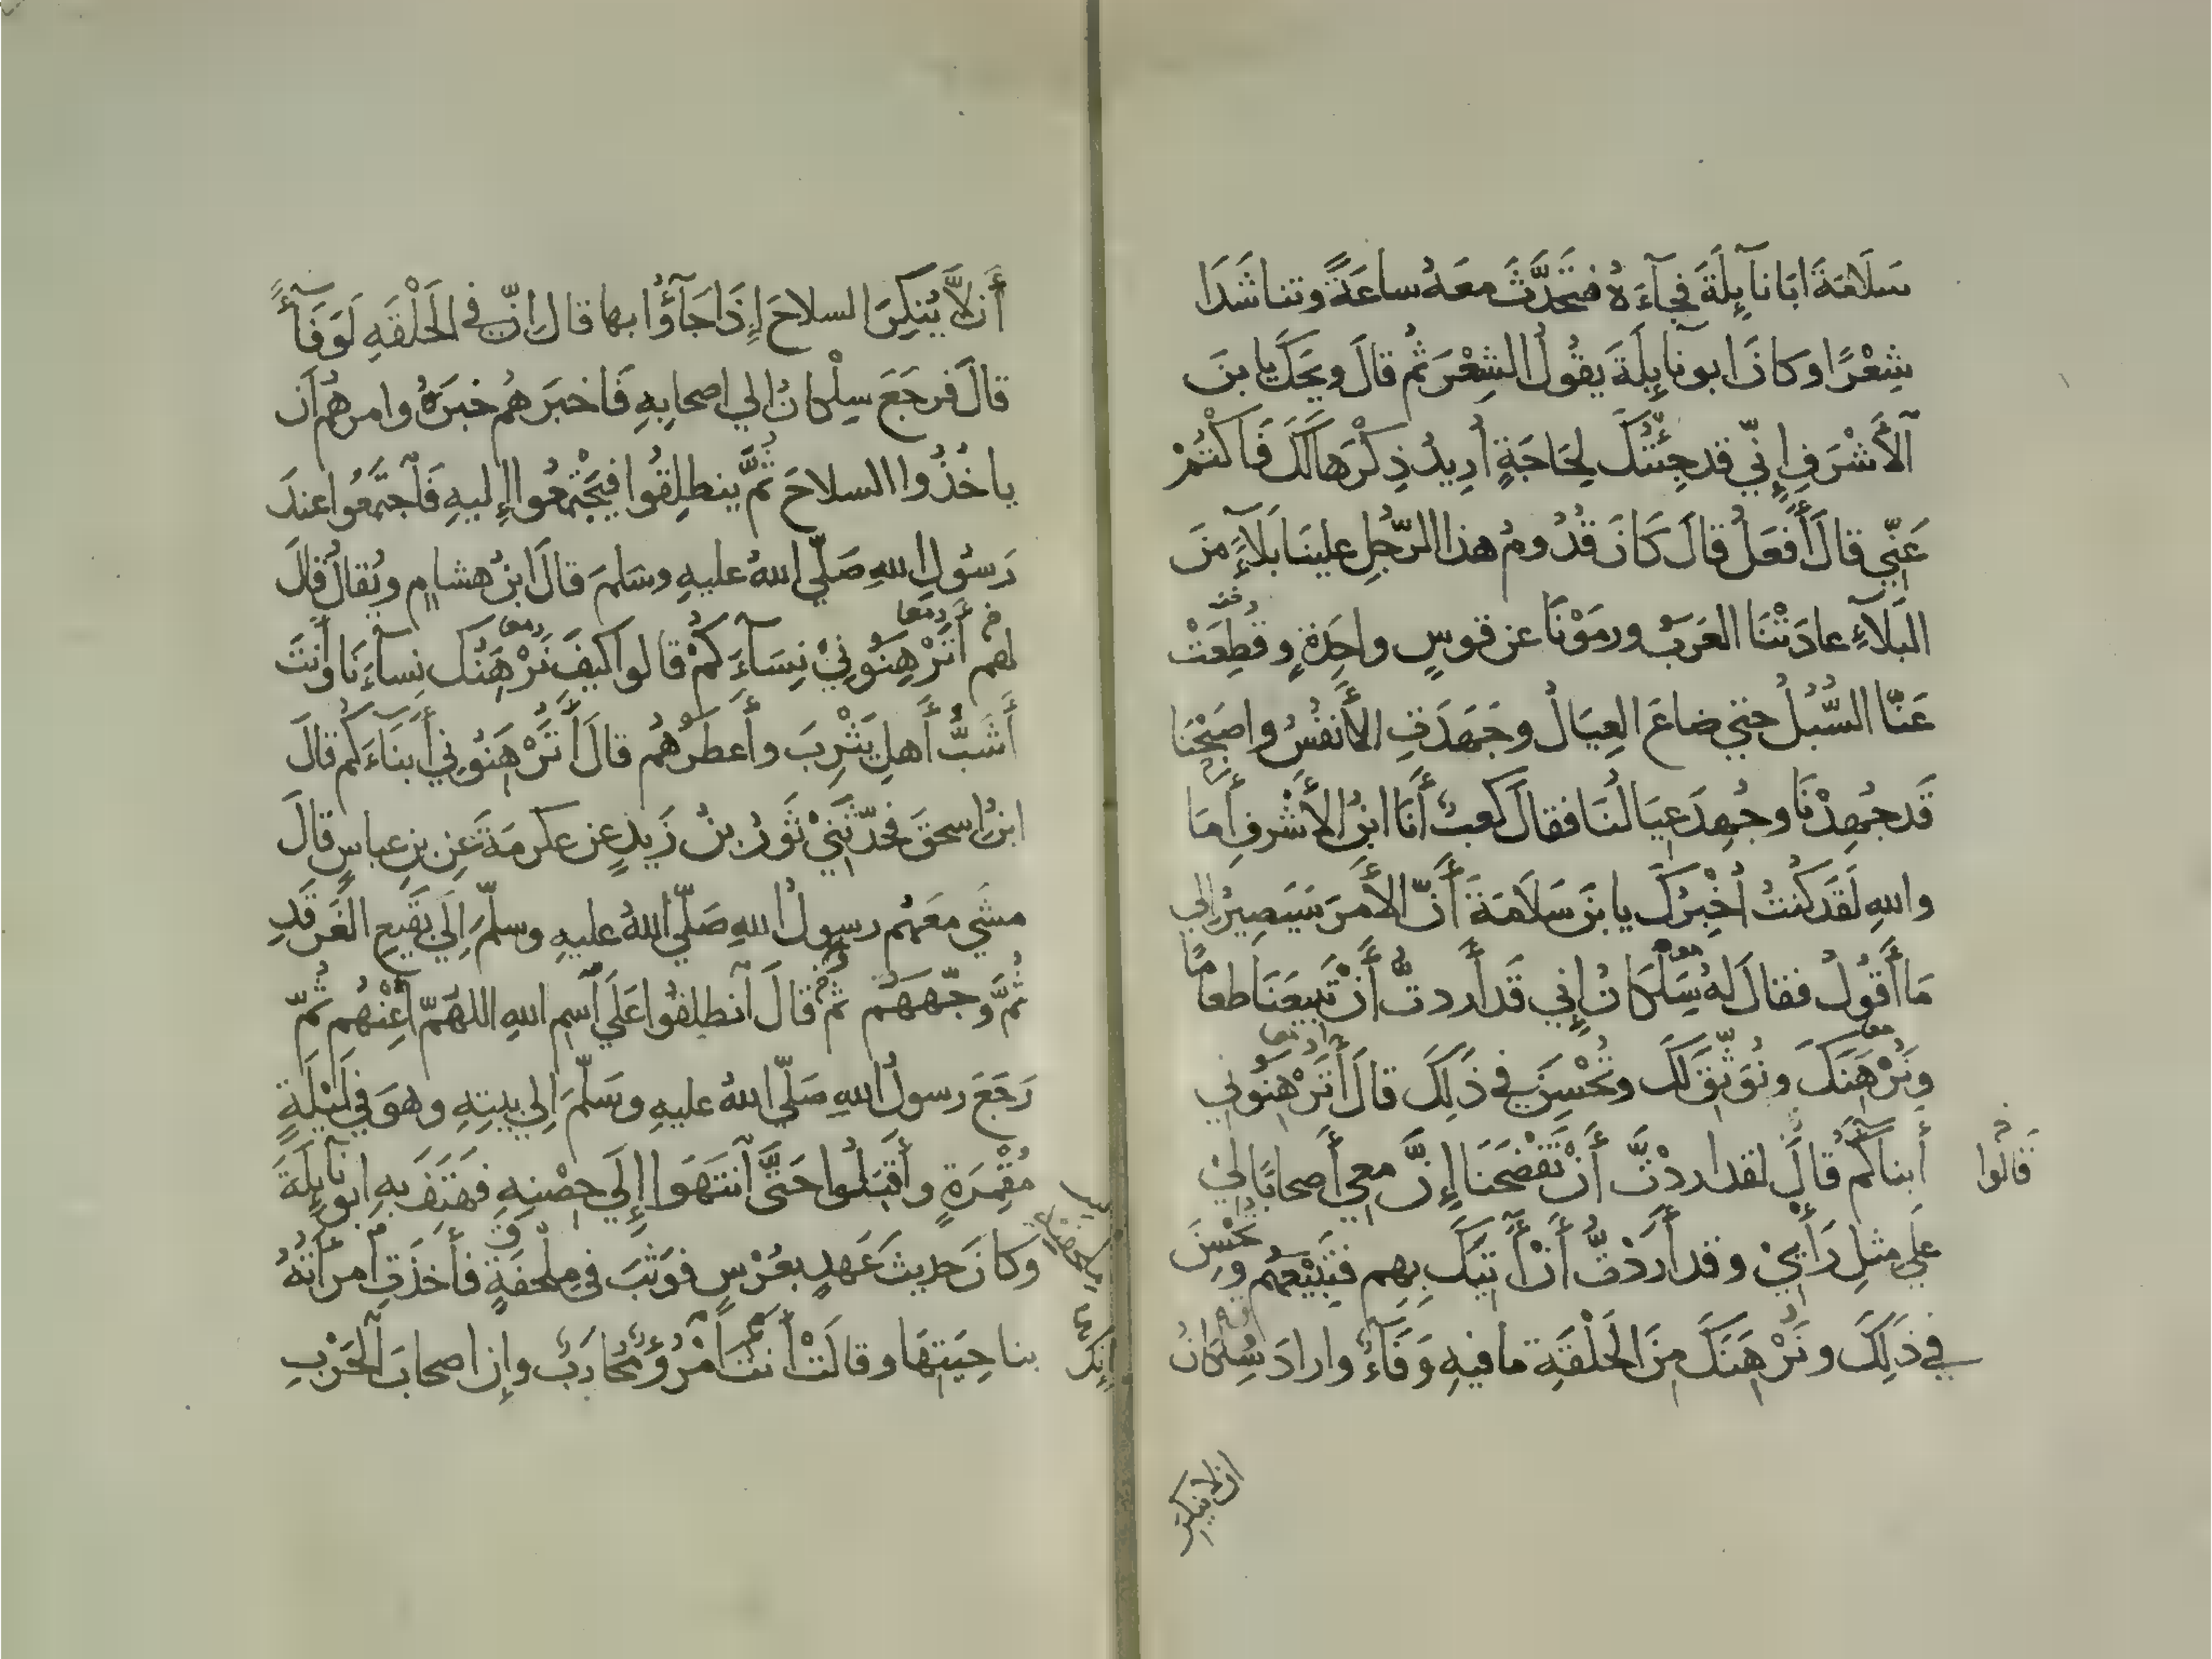 سَلَامَةَ ابَا نَآيِلَةَ فجَآءَهُ فتَحَدَّثَ معَهُ ساعَةً وتناشَدَا
شِعْرًا وكانَ ابو نَآيِلَةَ يقُولُ الشِعْرَ ثُم قالَ ويحَكَ يا بنَ
آلأَشْرَفِ إِنّي قد جِئْتُكَ لِحَاجَةٍ أُرِيدُ ذِكْرَهَا لَكَ فَاكْتُمْ
عَنّي قالَ أَفعَلُ قالَ كَانَ قُدُومُ هذا الرّجُلِ علينَا بَلَآءً مِنَ
البَلَآءِ عادَتْنَا العَرَبُ ورمَوْنَا عن قوسٍ واحِدَةٍ وقُطِعَتْ
عَنّا السُّبُلُ حتي ضاعَ العِيَالُ وجَهَدَتِ الأَنفُسُ واصبَحْنَا
قَد جُهِدْنَا وجُهِدَ عيَالنَا فقالَ كعبٌ أَنَا ابنُ الأَشْرفِ أَمَا
واللهِ لَقَد كُنتُ أُخْبِرُكَ يا بنَ سَلَامَةَ أَنّ الأَمرَ سَيَصِيرُ إلي
مَا أَقُولُ فقالَ لهُ سِلْكَانُ إِنِي قَد أَردتُّ أَنْ تَبِيعَنَا طعامًا
ونَرْهَنَكَ ونُوَثِّقَ لَكَ وتُحْسِنَ في ذَلِكَ قالَ أَتَرْهَنُونِي
أَبنَاكُم قَالَ لقد اردْتَّ أَنْ تَفْضَحَنَا إِنَّ معي أَصحابًا لِيْ
قَالُوا
علَي مثلِ رَأْيِيْ وقد أَرَدْتُّ أَنْ أَتيَكَ بِهِم فتَبِيْعَهُم وتُحْسِنَ
في ذَلِكَ ونَرْهَنَكَ مِنَ الحَلْقَةِ مافيهِ وَفَآءٌ وارادَ سِلْكَانُ
ان لا ينكر
أَن لَّا يُنكِرَ السلاحَ إِذَا جَآؤُا بها قال إِنّ في الحَلْقَةِ لَوَفَآءً
قالَ فرجَعَ سِلْكانُ الي اصحابِهِ فَاخبَرَهُم خبَرَهُ وامرهُم أَن
ياخُذُوا السلاحَ ثُمَّ ينطلِقُوا فيَجْتمِعُوا إِليهِ فَاجتَمَعُوا عندَ
رَسُولِ اللهِ صَلّي اللهُ عليهِ وسَلمَ قالَ ابنُ هشامٍ ويُقالُ قالَ
لهم أَتَرْهِنُونِيْ نِسَآءَكُمْ قالوا كيفَ نَرْهَنُكَ نِسآءَنَا وأَنتَ
أَشَبُّ أَهلِ يَثْرِبَ وأَعطَرُهُم قالَ أَتَرْهَنُونِي أَبنَآءَكُم قالَ
ابنُ اسحقَ فحَدّثَنِيْ ثَورُ بنُ زَيدٍ عن عكرمَةَ عَنِ بنِ عباسٍ قالَ
مشَي معَهُم رسولُ اللهِ صَلّي اللهُ عليهِ وسلّمَ إِلَي بَقِيعِ الغَرقَدِ
ثُمَّ وجّهَهُم ثم قالَ آنطلِقُوا عَلَي آسمِ اللهِ اللهُمّ أَعِنْهُم ثُمّ
رَجَعَ رسولُ اللهِ صَلّي اللهُ عليهِ وسَلّمَ إلي بيتِهِ وهوَ في لَيْلَةٍ
مُقْمِرَةٍ وأَقبَلُوا حَتَّى آنتَهَوا إِلَي حِصْنِهِ فهَتَفَ بهِ ابو نَآيِلَةَ
وكانَ حديثَ عَهدٍ بعُرْسٍ فوَثَبَ في مِلْحَفَةٍ فأَخذَتِ آمرأَتُهُ
بناحِيَتِهَا وقالتْ أَنتَ آمْرُؤٌ مُحَارَبٌ وإِن اصحابَ الحَرْبِ